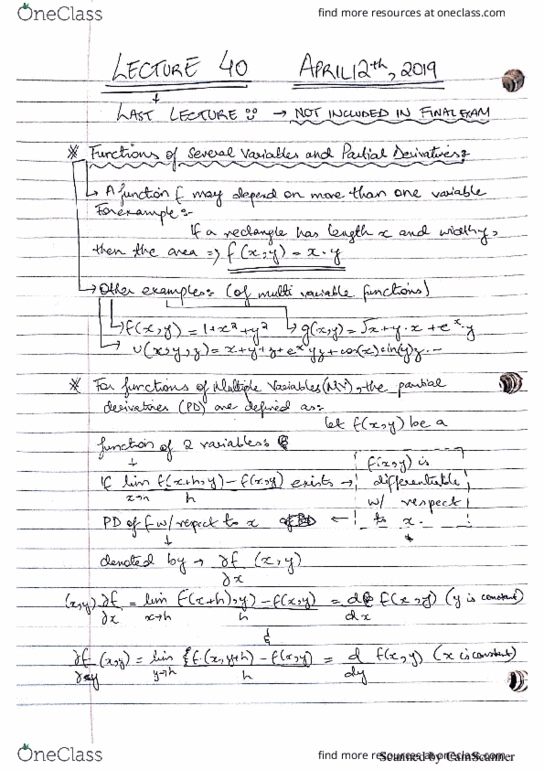 OneClass
find more resources at oneclass.com
LECTURE 40 APRIL 12th, 2019
LAST LECTURE → NOT INCLUDED IN FINAL EXAM
* Functions of Several Variables and Partial Derivatives:
↳ A function f may depend on more than one variable
For example:-
If a rectangle has length x and width y,
then the area => f(x,y) = x·y
→ Other examples: (of multi variable functions)
↳ f(x,y) = 1+x²+y² ↳ g(x,y) = √x+y·x + eˣ·y
→ U(x,y,z) = x+y+z+eˣyz+cos(x)sin(y)z...
* For functions of Multiple Variables(MV), the partial
derivatives (PD) are defined as:
let f(x,y) be a
function of 2 variables
If lim f(x+h,y)-f(x,y) exists →
x→h h
f(x,y) is
differentiable
w/ respect
to x.
PD of f w/ repect to x ←
denoted by → ∂f (x,y)
∂x
(x,y) ∂f = lim f(x+h),y)-f(x,y) = d f(x,y) (y is constant)
∂x x→h h dx
&
∂f (x,y) = lim f(x,y+h)-f(x,y) = d f(x,y) (x is constant)
∂y y→h h dy
OneClass
find more resources at oneclass.com
Scanned by CamScanner